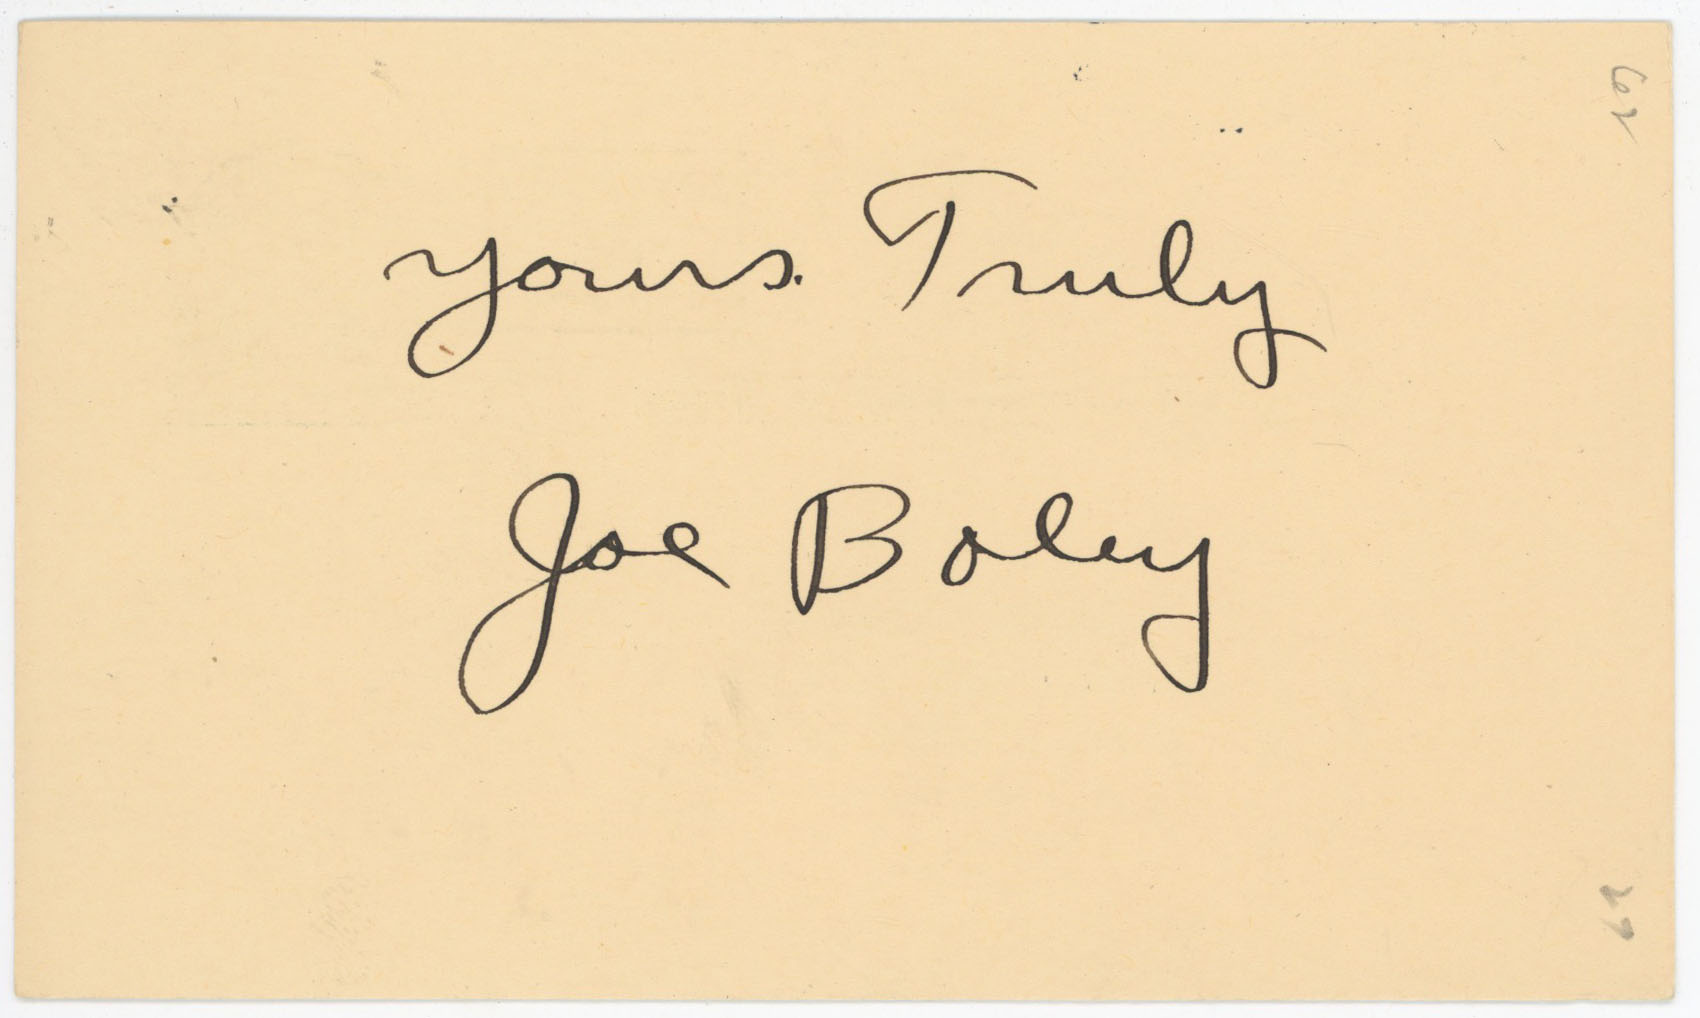 yours. Truly
Joe Boley